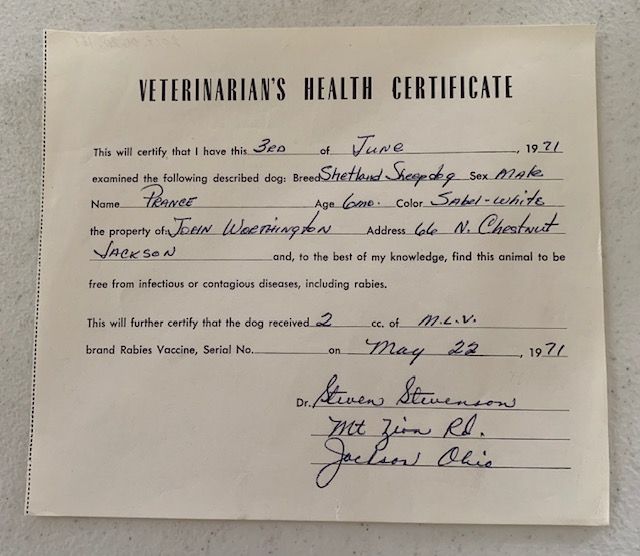 VETERINARIAN'S HEALTH CERTIFICATE
This will certify that I have this 3RD of June, 1971
examined the following described dog: Breed Shetland Sheepdog Sex Male
Name PRANCE Age 6mo. Color Sabel-White
the property of: JOHN WORTHINGTON Address 66 N. Chestnut
JACKSON and, to the best of my knowledge, find this animal to be
free from infectious or contagious diseases, including rabies.
This will further certify that the dog received 2 cc. of M.L.V.
brand Rabies Vaccine, Serial No. on May 22, 1971
Dr. Steven Stevenson
Mt Zion Rd.
Jackson Ohio